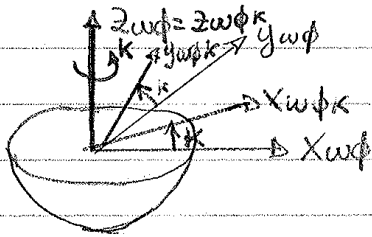 Zωφ = Zωφκ
κ
yωφκ
yωφ
κ
Xωφκ
κ
Xωφ